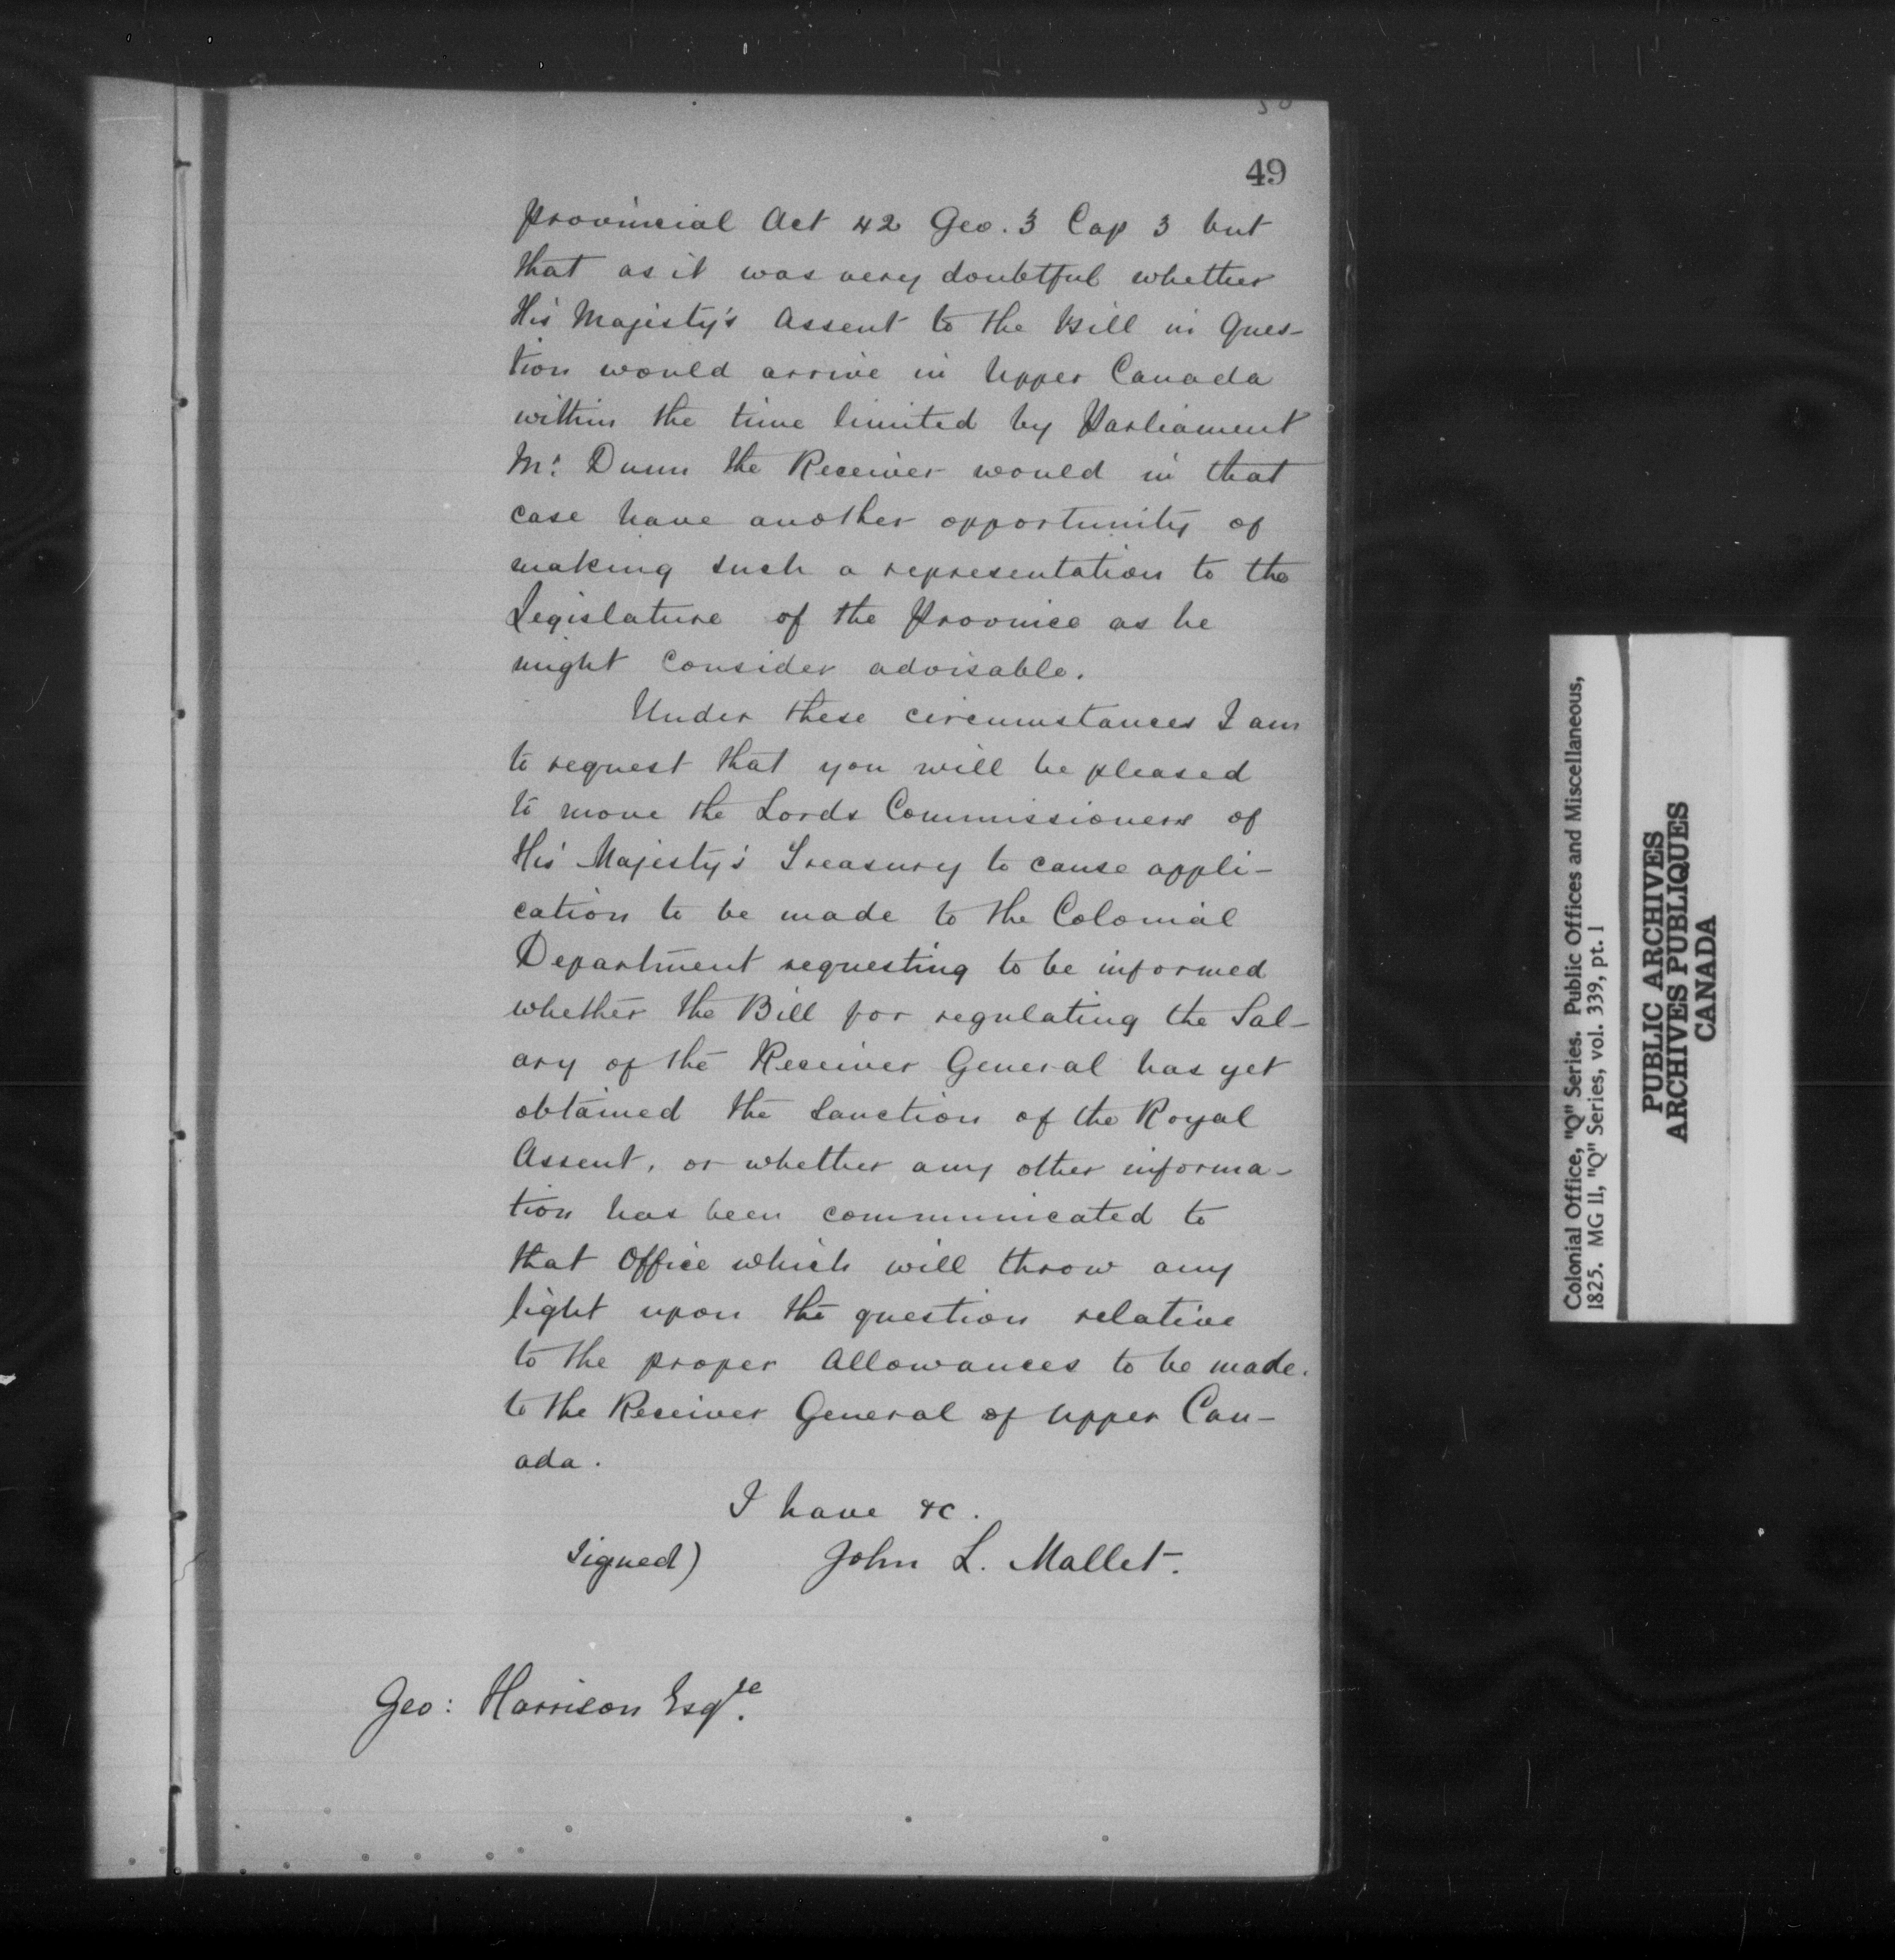 49
Provincial Act 42 Geo. 3 Cap 3 but
that as it was very doubtful whether
His Majesty's Assent to the Bill in Ques-
tion would arrive in Upper Canada
within the time limited by Parliament
Mr. Dunn the Receiver would in that
case have another opportunity of
making such a representation to the
Legislature of the Province as he
might consider advisable.
Under these circumstances I am
to request that you will be pleased
to move the Lords Commissioners of
His Majesty's Treasury to cause appli-
cation to be made to the Colonial
Department requesting to be informed
whether the Bill for regulating the Sal-
ary of the Receiver General has yet
obtained the Sanction of the Royal
Assent, or whether any other informa-
tion has been communicated to
that Office which will throw any
light upon the question relative
to the proper Allowances to be made.
to the Receiver General of Upper Can-
ada.
I have &c.
Signed) John L. Mallet.
Geo: Harrison Esqre.
Colonial Office, "Q" Series. Public Offices and Miscellaneous,
1825. MG 11, "Q" Series, vol. 339, pt. 1
PUBLIC ARCHIVES
ARCHIVES PUBLIQUES
CANADA